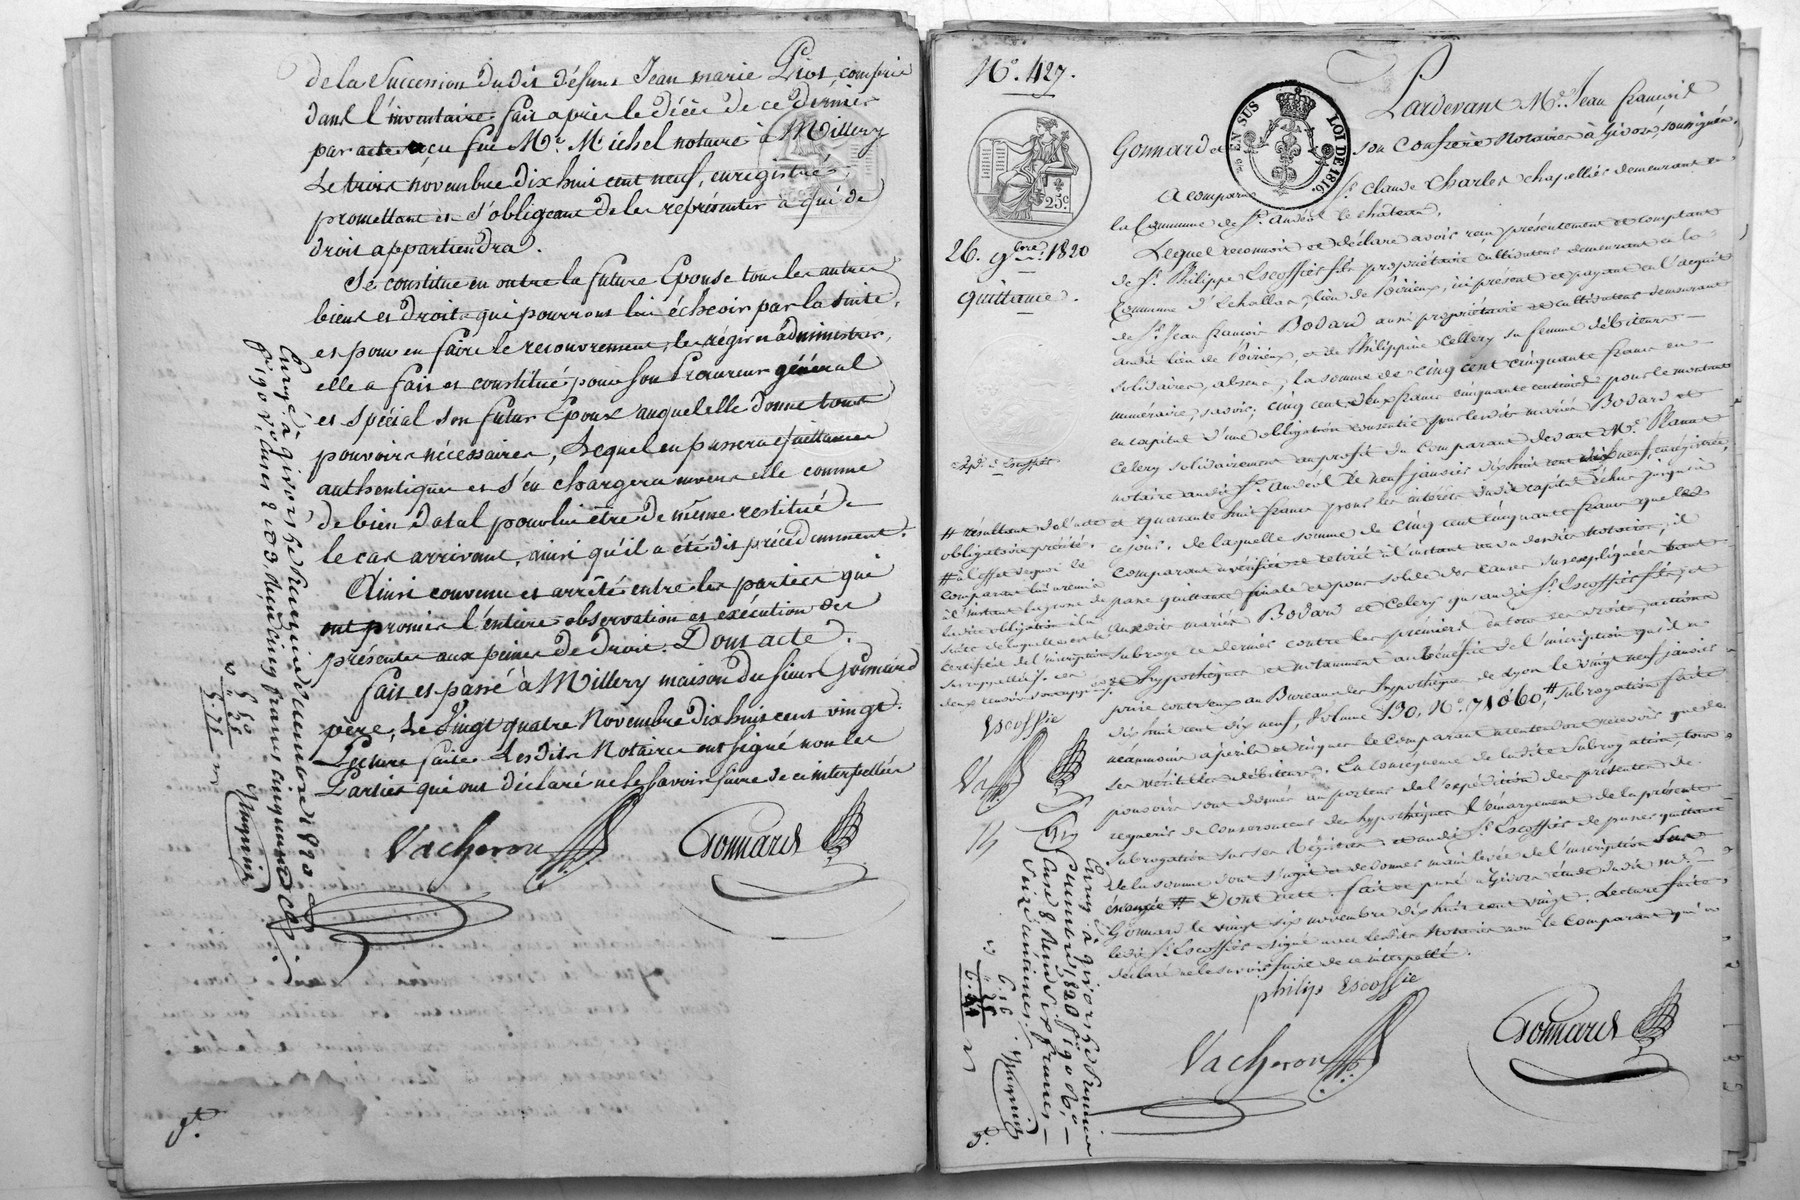 de la Succession dudit défunt Jean marie Piot, comprise
dans l'inventaire fait après le décès de ce dernier
par acte reçu feu Me. Michel notaire à Millery
Le trois novembre dix huit cent neuf, enregistré,
promettant et s'obligeant de les représenter à qui de
droit appartiendra.
Se constitue en outre la future Epouse tous les autres
biens et droits qui pourront lui écheoir par la suite,
et pour en faire le recouvrement, les régir et administrer,
elle a fait et constitué pour son Procureur général
et spécial son futur Epoux auquel elle donne tous
pouvoirs nécessaires, Lequel en passera quittances
authentiques et s'en chargera envers elle comme
de bien dotal pour lui être de même restitué
le cas arrivant, ainsi qu'il a été dit précédemment.
Ainsi convenu et arrêté entre les parties qui
ont promis l'entière observation et exécution des
présentes aux peines de droit. Dont acte.
fait et passé à Millery maison du sieur Gonnard
père, Le Vingt quatre Novembre dix huit cent vingt.
Lecture faite Lesdits Notaires ont signé non les
Parties qui ont déclaré ne le savoir faire de ce interpellées
Vacheron Gonnard
Enregé. à Givors le Premier décembre 1820.
fo. 90 vo, cases 2 et 3, Reçu cinq francs cinquante ces.
5. 50
5. 75
No. 427.
EN SUS LOI DE 1816.
25c
26. 9bre. 1820
quittance.
Pardevant Me. Jean françois
Gonnard et son Confrère Notaires à Givors, soussignés,
A comparu Sr. Claude Charles chapellier demeurant en
la Commune de St. andéol le château,
Lequel reconnoit et déclare avoir reçu présentement et comptant
de Sr. Philippe Escoffier fils propriétaire cultivateur demeurant en la
Commune d'Echallas, lieu de Virieux, ici présent et payant en l'acquit
de Sr. Jean françois Bodard aussi propriétaire et cultivateur demeurant
audit lieu de Virieux, et de Philippine Cellery sa femme débiteurs
solidaires, absens, la somme de cinq cent cinquante francs en
numéraire, savoir, cinq cent deux francs cinquante centimes pour le montant
en capital d'une obligation consentie par lesdits mariés Bodard et
Celery solidairement au profit du comparant devant Me.
notaire audit St. andéol le neuf janvier dix huit cent dix neuf, enregistrée,
et quarante huit francs pour les intérêts dudit capital échus jusqu'à
ce jour. de laquelle somme de cinq cent cinquante francs que le
comparant a vérifiée et retirée à l'instant au vu desdits Notaires, il
passe quittance finale et pour solde des causes sus expliquées tant
auxdits mariés Bodard et Celery qu'audit Sr. Escoffier fils, et
subroge ce dernier contre les premiers en tous ses droits, actions
et hypothèques et notamment au bénéfice de l'inscription qu'il a
prise contr'eux au Bureau des hypothèques de Lyon le vingt neuf janvier
dix huit cent dix neuf, Volume 130, No. 71860, # Subrogation faite
néanmoins à périls et risques le comparant n'entendant recevoir que de
ses véritables débiteurs. En conséquence de ladite Subrogation, tous
pouvoirs sont donnés au porteur de l'expédition des présentes de
requérir du Conservateur des hypothèques l'émargement de la présente
subrogation sur ses Registres et audit Sr. Escoffier de passer quittance
de la somme dont s'agit et de donner main levée de l'inscription sus
énoncée # Dont acte. fait et passé à Givors étude dudit Me.
Gonnard le vingt six novembre dix huit cent vingt. Lecture faite
ledit Sr. Escoffier a signé avec lesdits Notaires non le Comparant qui a
déclaré ne le savoir faire de ce interpellé.
philipe Escoffie
Vacheron Gonnard
# résultant de l'acte
obligatoire précité.
# à l'effet de quoi le
comparant lui a remis
à l'instant la grosse de
ladite obligation à la
suite de laquelle est le
Certificat de l'inscription
Escoffie
Enregé. à Givors le Premier
décembre 1820 fo. 90
Case 8 Reçu six francs
Seize centimes.
6. 16